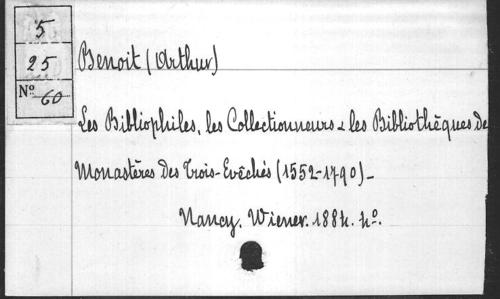 5
25
Nº 60
Benoit (Arthur)
Les Bibliophiles, les Collectionneurs & les Bibliothèques de
Monastères des Trois-Evêchés (1552-1790)_
Nancy. Wiener. 1884. 4º.